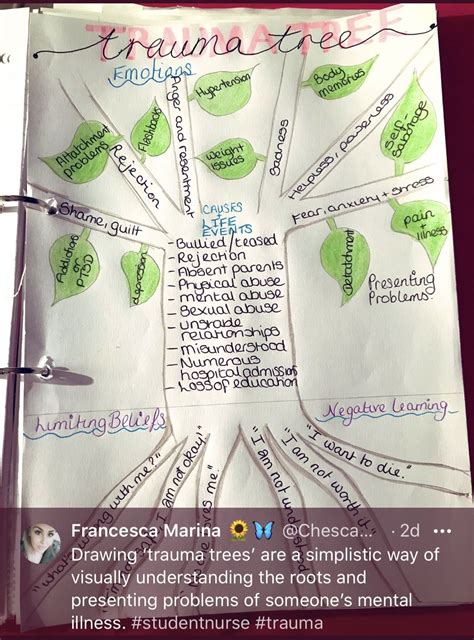 trauma tree
TRAUMA TREE
Emotions
Anger and resentment
Hypertension
Body memories
Attatchment problems
Flashbacks
Rejection
weight issues
Sadness
Helpless, powerless
Self Sabotage
Shame, guilt
Fear, anxiety + stress
Addiction or PTSD
depression
Detatchment
pain + illness
Presenting
Problems
CAUSES
+
LIFE
EVENTS
- Bullied/teased
- Rejection
- Absent parents
- Physical abuse
- mental abuse
- Sexual abuse
- Unstable
relationships
- misunderstood
- Numerous
hospital admissions
- Loss of education
Limiting Beliefs
Negative Learning
with me?"
I am not okay!"
me."
"I am not
"I am not worth it."
"I want to die."
Francesca Marina 🌻 🦋 @Chesca... · 2d
Drawing 'trauma trees' are a simplistic way of
visually understanding the roots and
presenting problems of someone's mental
illness. #studentnurse #trauma